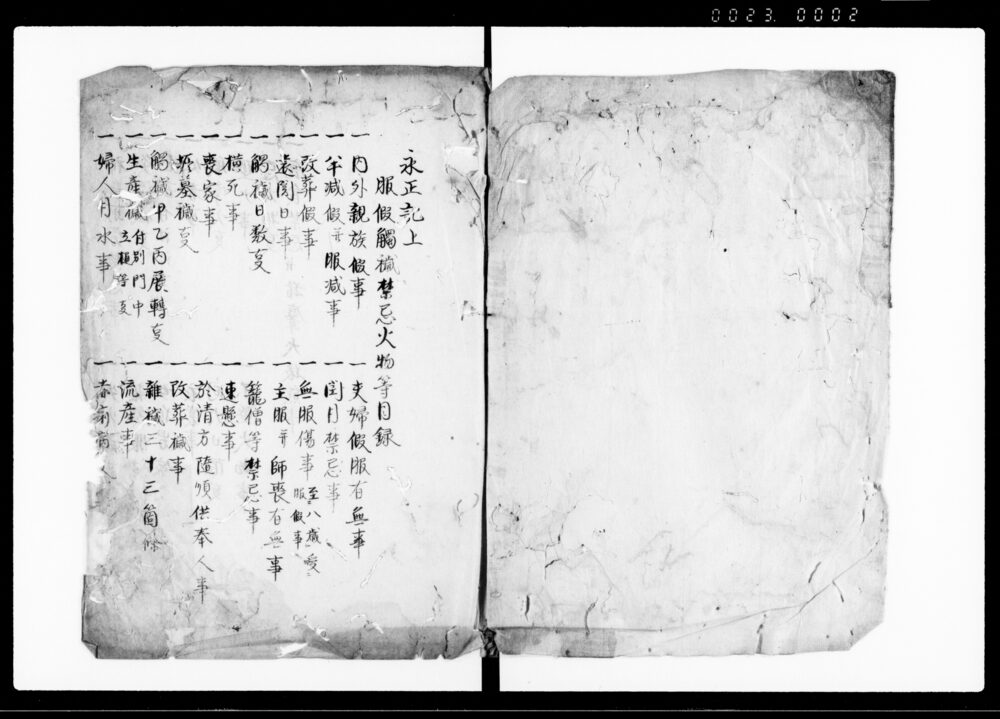 0023. 0002
永正記上
服假觸穢禁忌火物等目録
一 内外親族假事
一 夫婦假服有無事
一 半減假并服减事
一 閏月禁忌事
一 改葬假事
一 無服傷事 至八歳
服假事
一 遠聞日事
一 主服并師喪有無事
一 觸穢日数㕝
一 籠僧等禁忌事
一 横死事
一 速懸事
一 喪家事
一 於清方随順供奉人事
一 墓穢㕝
一 改葬穢事
一 觸穢甲乙丙展轉㕝
一 雜穢三十三箇條
一 生産穢 付別門中
立樋等㕝
一 流産事
一 婦人月水事
一 赤 人